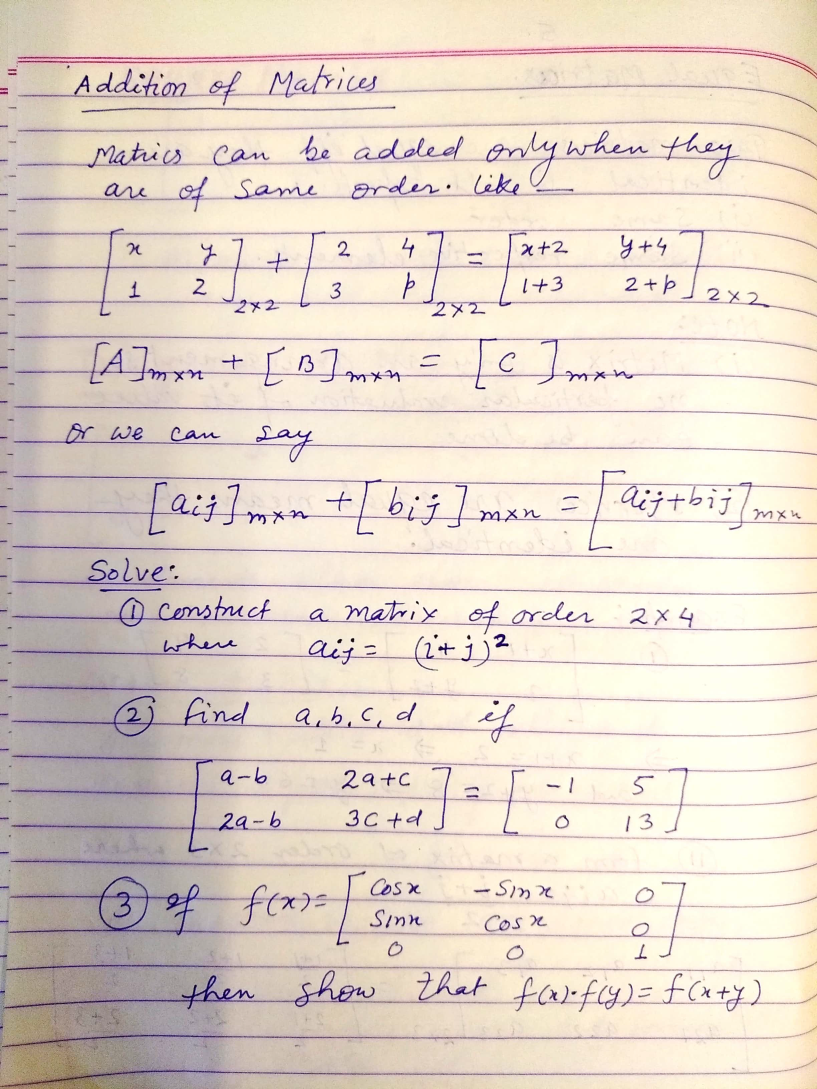 Addition of Matrices
Matrics can be added only when they
are of Same order. like —
[ x y ; 1 2 ]2×2 + [ 2 4 ; 3 p ]2×2 = [ x+2 y+4 ; 1+3 2+p ]2×2
[A]m×n + [B]m×n = [C]m×n
Or we can say
[aij]m×n + [bij]m×n = [aij+bij]m×n
Solve:
① Construct a matrix of order 2×4
where aij = (i+j)²
② find a, b, c, d if
[ a-b 2a+c ; 2a-b 3c+d ] = [ -1 5 ; 0 13 ]
③ If f(x)= [ Cosx -Sinx 0 ; Sinx Cosx 0 ; 0 0 1 ]
then show that f(x)·f(y) = f(x+y)